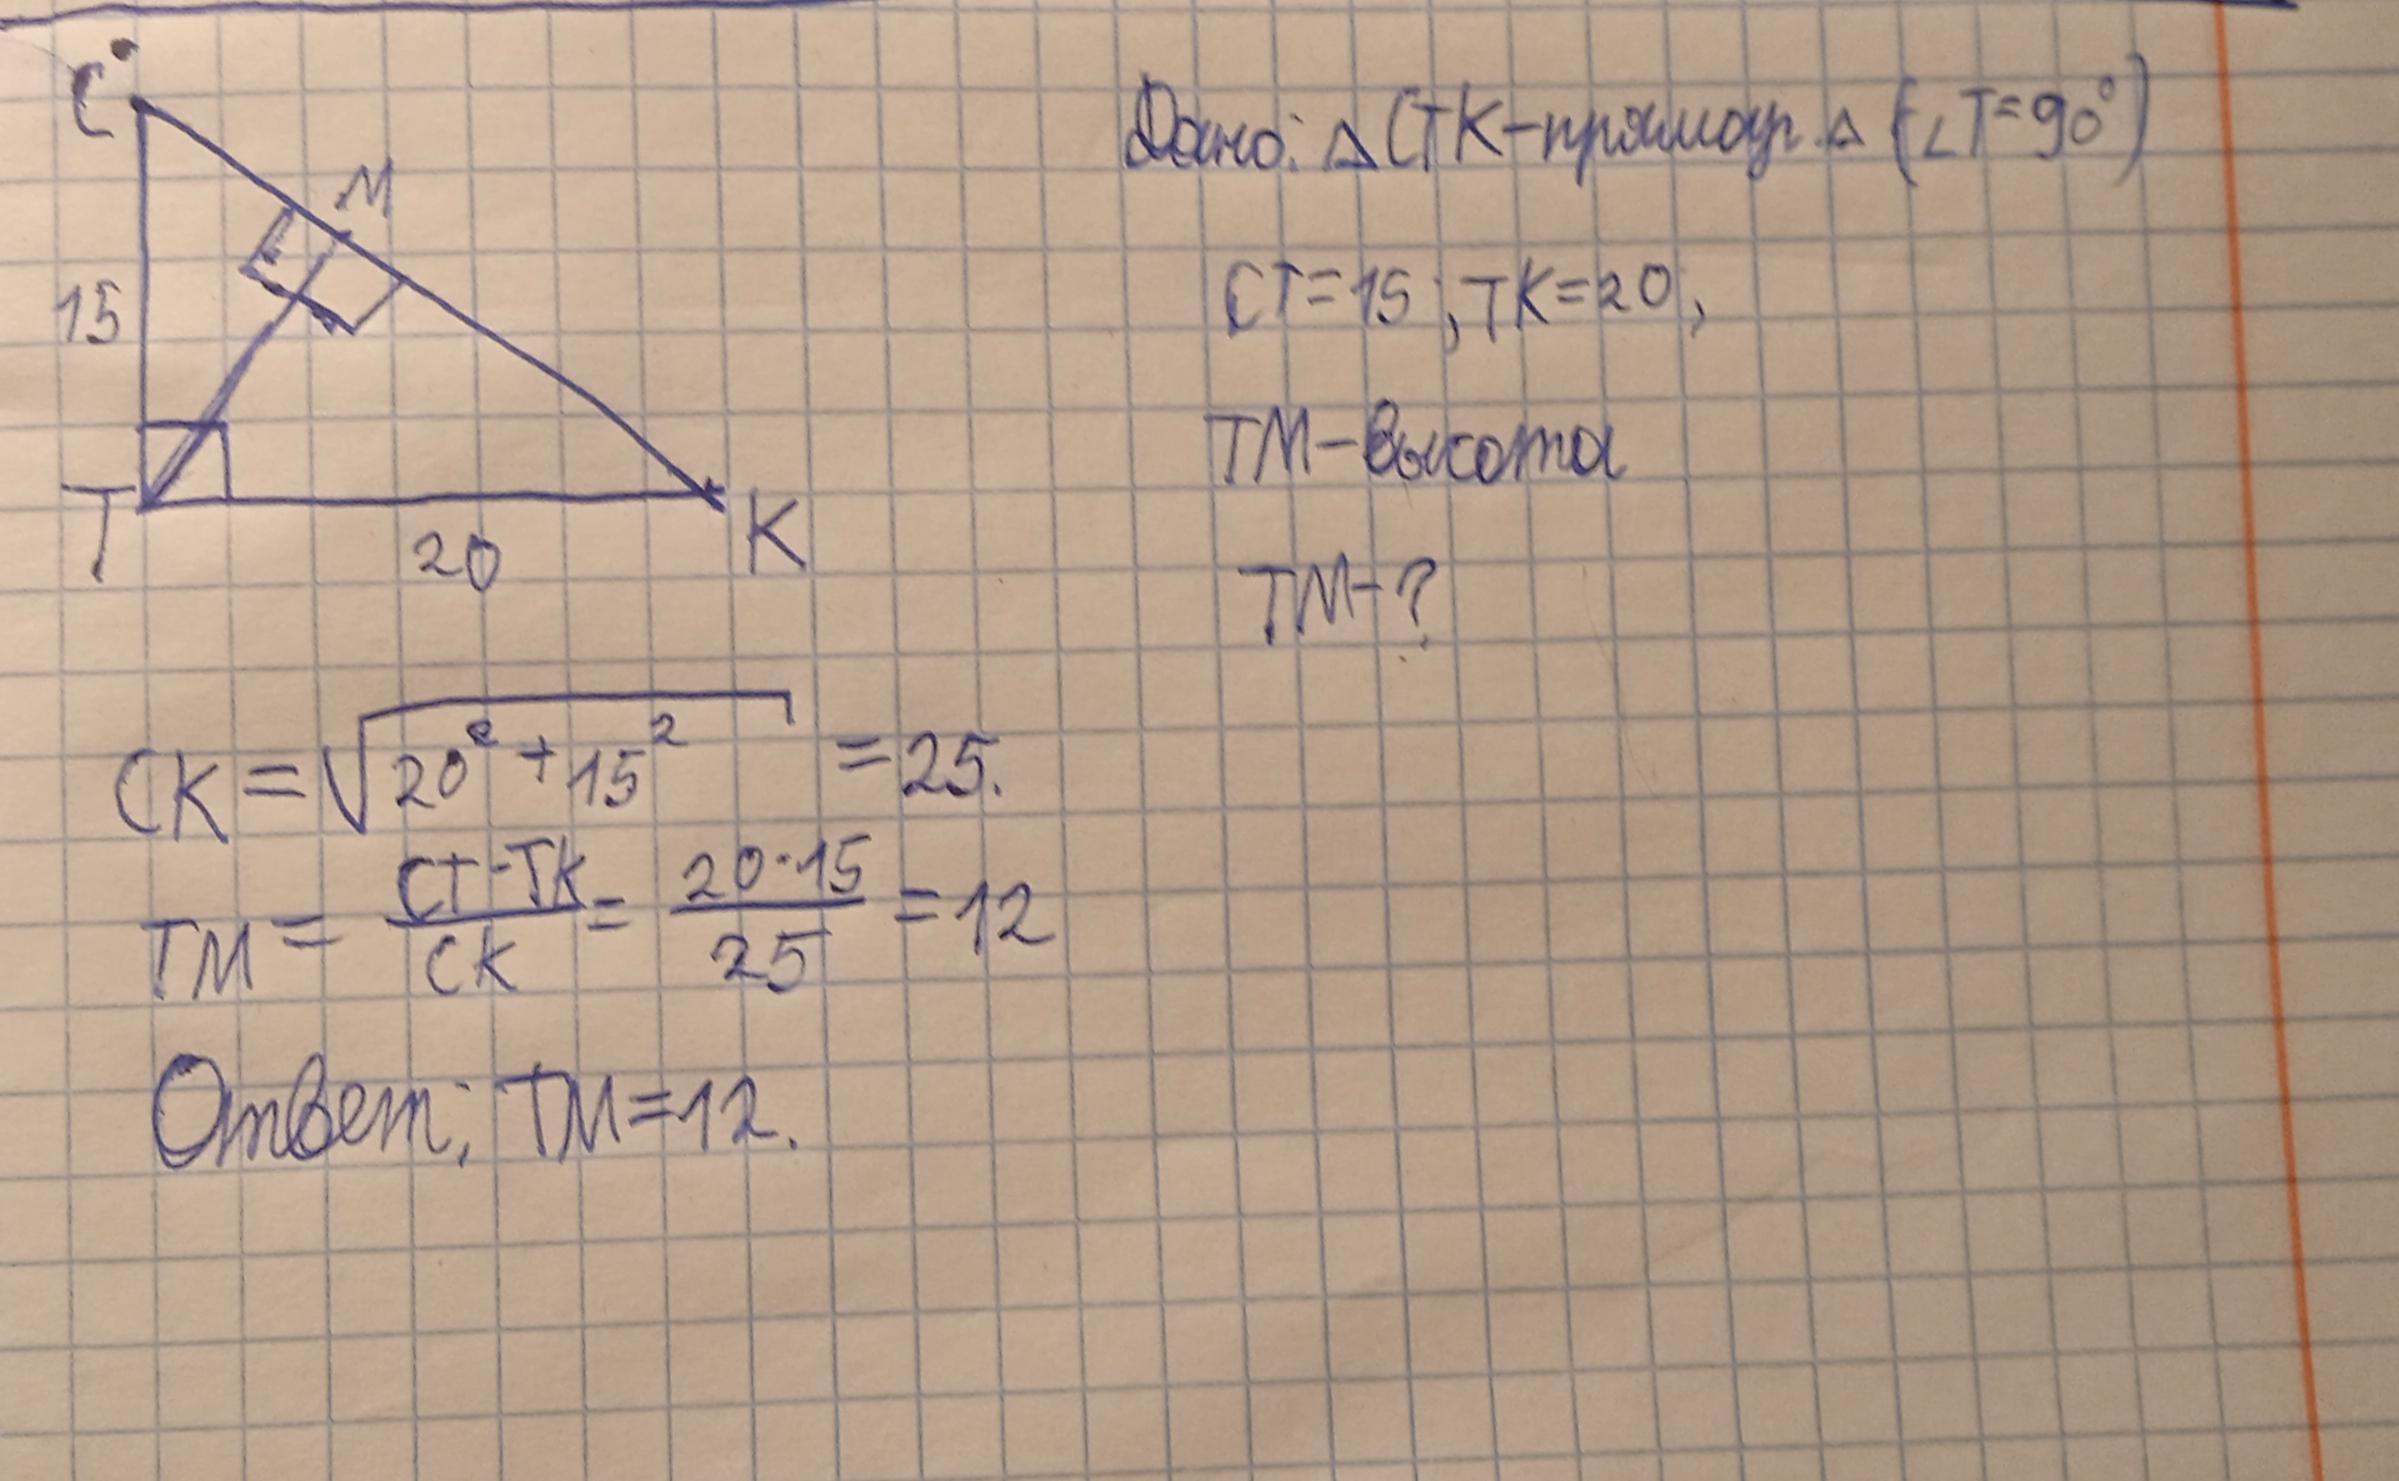 C
M
15
T
20
K
Дано: △CTK-прямоуг. △ (∠T=90°)
CT=15, TK=20,
TM-высота
TM-?
CK = √20² + 15² = 25.
TM = CT·TK/CK = 20·15/25 = 12
Ответ: TM=12.